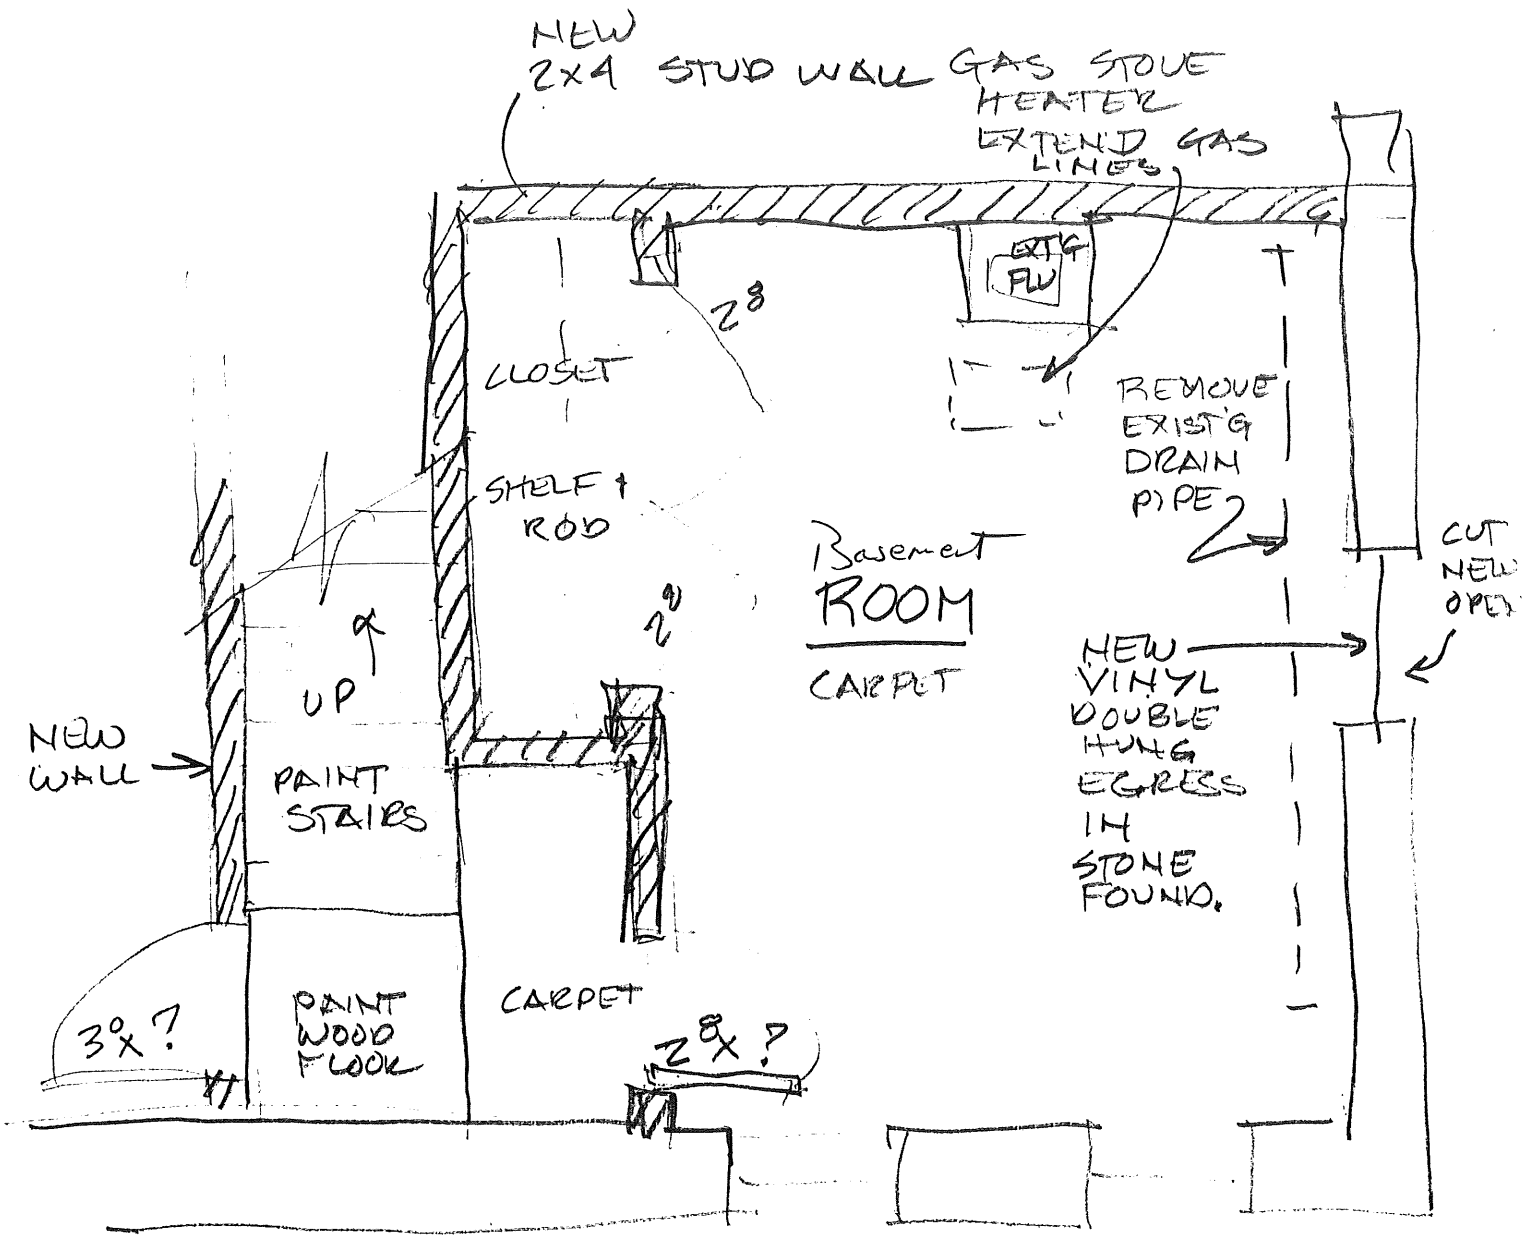 NEW
2X4 STUD WALL
GAS STOVE
HEATER
EXTEND GAS
LINES
EXT'G
FLU
2⁸
CLOSET
SHELF &
ROD
REMOVE
EXIST'G
DRAIN
PIPE
CUT
NEW
OPEN
Basement
ROOM
CARPET
2⁸
UP
NEW
VINYL
DOUBLE
HUNG
EGRESS
IN
STONE
FOUND.
NEW
WALL
PAINT
STAIRS
3⁰X?
PAINT
WOOD
FLOOR
CARPET
2⁸X?